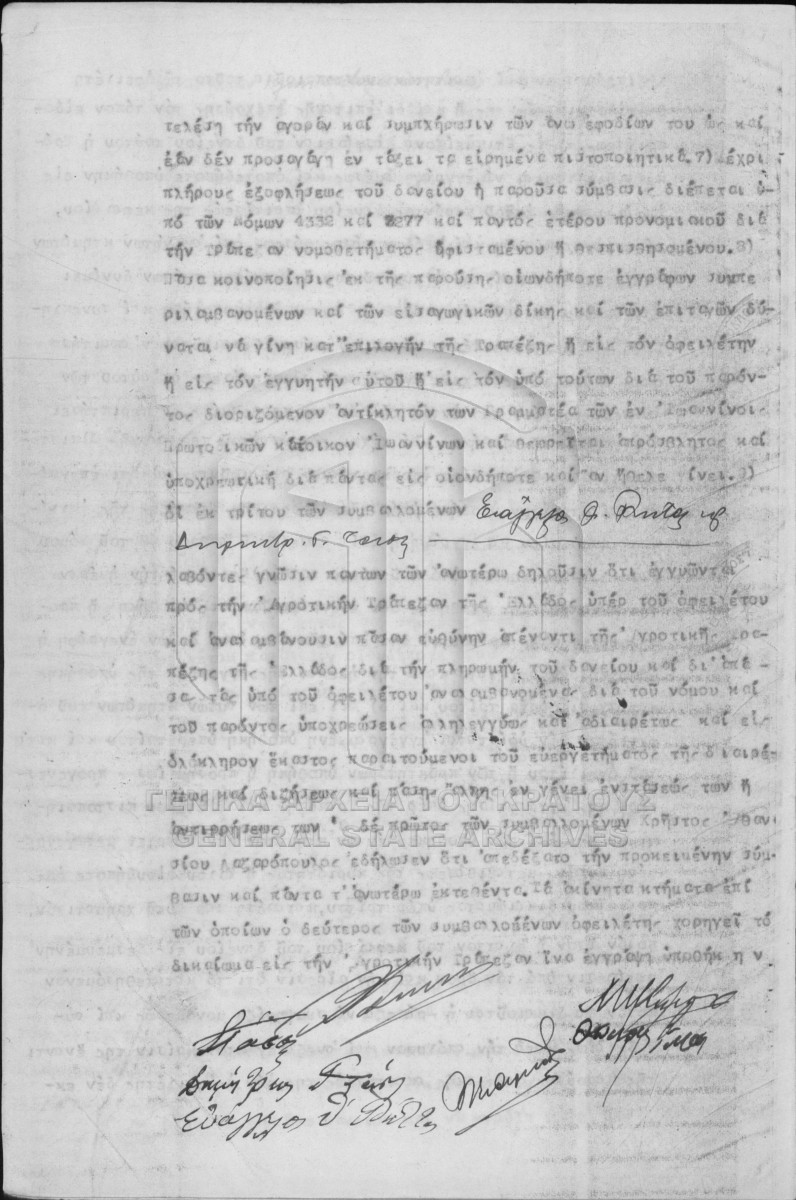 τελέση τήν αγοράν καί συμπλήρωσιν τῶν ἄνω εφοδίων του ὡς καί
ἐάν δέν προσαγάγη εν τάξει τα εἰρημένα πιστοποιητικά.7) Μέχρι
πλήρους ἐξοφλήσεως τοῦ δανείου ἡ παροῦσα σύμβασις διέπεται ὑ-
πό τῶν Νόμων 4332 καί 2277 καί παντός ἑτέρου προνομιακοῦ διά
τήν Τράπεζαν νομοθετήματος ὑφισταμένου ἤ θεσπισθησομένου.8)
Πᾶσα κοινοποίησις ἐκ τῆς παρούσης οἱωνδήποτε ἐγγράφων συμπε
ριλαμβανομένων καί τῶν εἰσαγωγικῶν δίκης καί τῶν ἐπιταγῶν δύ-
ναται νά γίνη κατ' ἐπιλογήν τῆς Τραπέζης ἤ εἰς τόν ὀφειλέτην
ἤ εἰς τόν ἐγγυητήν αὐτοῦ ἤ εἰς τόν ὑπό τούτων διά τοῦ παρόν-
τος διοριζόμενον ἀντίκλητόν των Γραμματέα τῶν ἐν Ἰωαννίνοις
Πρωτοδικῶν κάτοικον Ἰωαννίνων καί θεωρεῖται ἀπρόσβλητος καί
ὑποχρεωτική διά πάντας εἰς οἱονδήποτε καί ἄν ἤθελε γίνει.9)
Οἱ ἐκ τρίτου τῶν συμβαλλομένων Εὐάγγελος Θ.
Δημητρ. Γ.
λαβόντες γνῶσιν πάντων τῶν ἀνωτέρω δηλοῦσιν ὅτι ἐγγυῶνται
πρός τήν Ἀγροτικήν Τράπεζαν τῆς Ἑλλάδος ὑπέρ τοῦ ὀφειλέτου
καί ἀναλαμβάνουσιν πᾶσαν εὐθύνην ἀπέναντι τῆς Ἀγροτικῆς Τρα-
πέζης τῆς Ἑλλάδος διά τήν πληρωμήν τοῦ δανείου καί δι' ἁπά-
σας τάς ὑπό τοῦ ὀφειλέτου ἀναλαμβανομένας διά τοῦ νόμου καί
τοῦ παρόντος ὑποχρεώσεις ἀλληλεγγύως καί ἀδιαιρέτως καί εἰς
ὁλόκληρον ἕκαστος παραιτούμενοι τοῦ εὐεργετήματος τῆς διαιρέ-
σεως καί διζήσεως καί πάσης ἄλλης ἐν γένει ἐνστάσεώς των ἤ
ΓΕΝΙΚΑ ΑΡΧΕΙΑ ΤΟΥ ΚΡΑΤΟΥΣ
ἀντιρρήσεως των Ὁ δέ πρῶτος τῶν συμβαλλομένων Χρῆστος Ἀθαν
GENERAL STATE ARCHIVES
σίου Λαζαρόπουλος ἐδήλωσεν ὅτι ἀπεδέξατο τήν προκειμένην σύμ-
βασιν καί πάντα τ' ἀνωτέρω ἐκτεθέντα. Τά ἀκίνητα κτήματα ἐπί
τῶν ὁποίων ὁ δεύτερος τῶν συμβαλλομένων ὀφειλέτης χορηγεῖ τό
δικαίωμα εἰς τήν Ἀγροτικήν Τράπεζαν ἵνα ἐγγράψη ὑποθήκην
Εὐάγγελος Θ